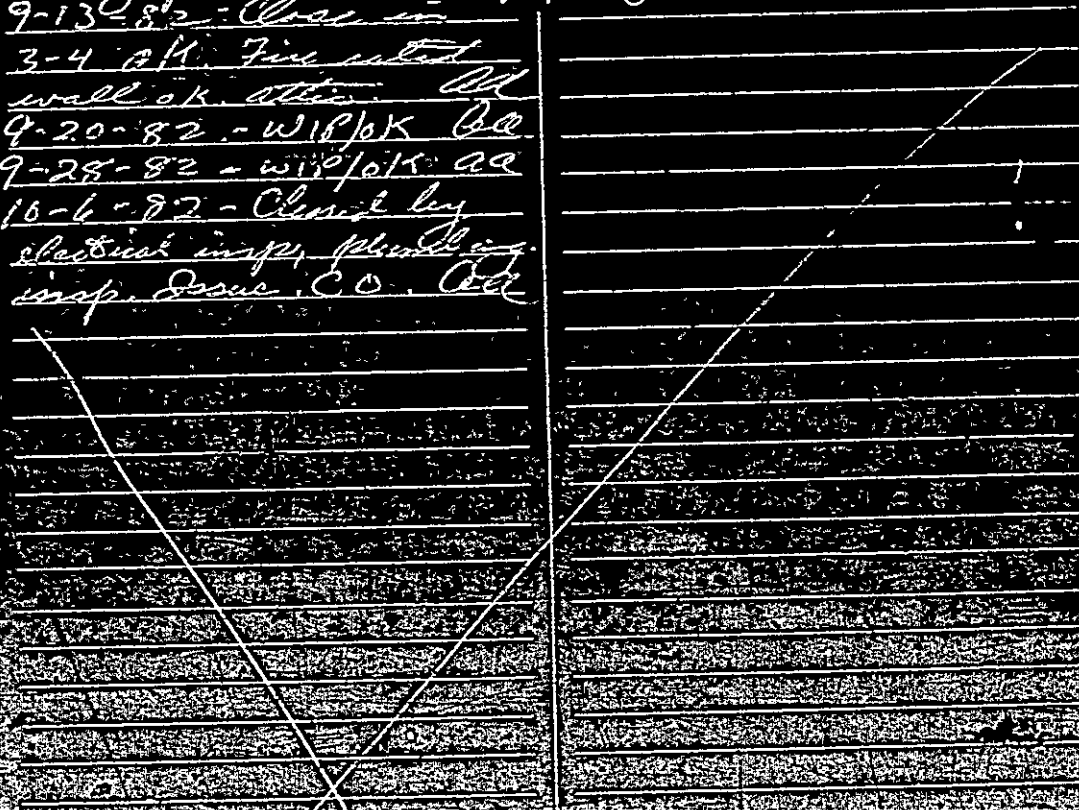 9-13-82 - Close in
3-4 OK. Fire rated
wall OK. attic.
9-20-82 - WIP/OK
9-28-82 - WIP/OK
10-6-82 - Closed by
electrical insp, plumbing
insp. Issue C.O.